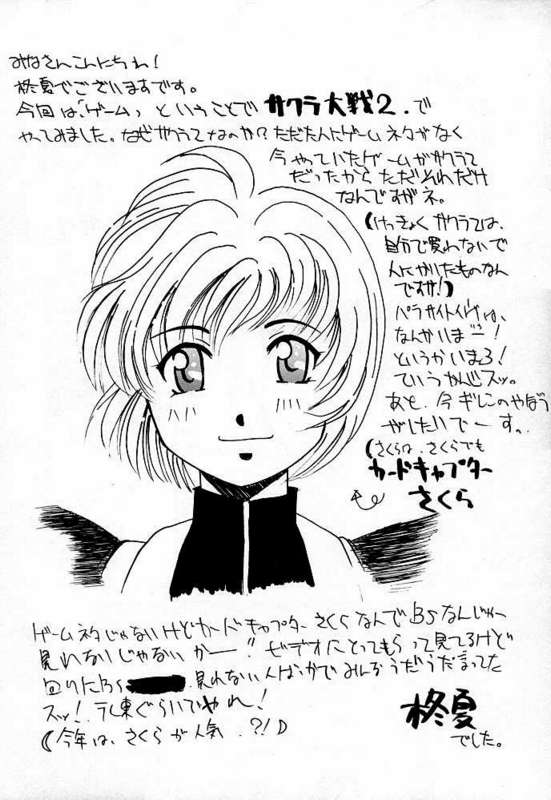 みなさんこんにちわ!
柊夏でございますです。
今回は、「ゲーム」ということでサクラ大戦2.で
やってみました。なぜサクラてなのか?ただたんにゲームネタがなく
今やっていたゲームがサクラて
だったからただそれだけ
なんですがネ。
(けっきょくサクラては、
自分で買わないで
人にかりたものなん
ですけど!)
パラサイトイヴは、
なんかいまニー!
というかいまろ!
ていうかんじスッ。
あと、今ギレンのやぼう
がしたいでーす。
(さくらは、さくらでも
カードキャプター
さくら
ゲームネタじゃないけどカードキャプターさくらなんでBSなんじゃー
見れないじゃないかー!!ビデオにとってもらって見てるけど
回りにBS 見れない人ばっかでみんなうだうだまってた
スッ!テレ東ぐらいでやれ!
(今年は、さくらが人気.?!)
柊夏
でした。